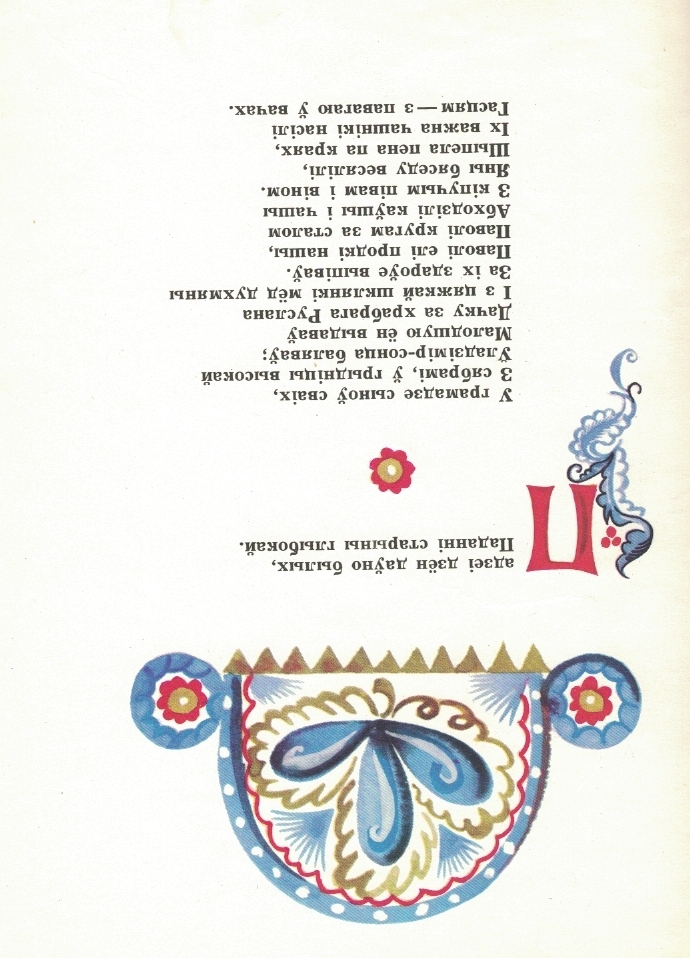 Падзеі дзён даўно былых,
Паданні старыны глыбокай.
У грамадзе сыноў сваіх,
З сябрамі, ў грыдніцы высокай
Ўладзімір-сонца баляваў;
Малодшую ён выдаваў
Дачку за храбрага Руслана
І з цяжкай шклянкі мёд духмяны
За іх здароўе выпіваў.
Паволі елі продкі нашы,
Паволі кругам за сталом
Абходзілі каўшы і чашы
З кіпучым півам і віном.
Яны бяседу весялілі,
Шыпела пена па краях,
Іх важна чашнікі насілі
Гасцям — з павагаю ў вачах.